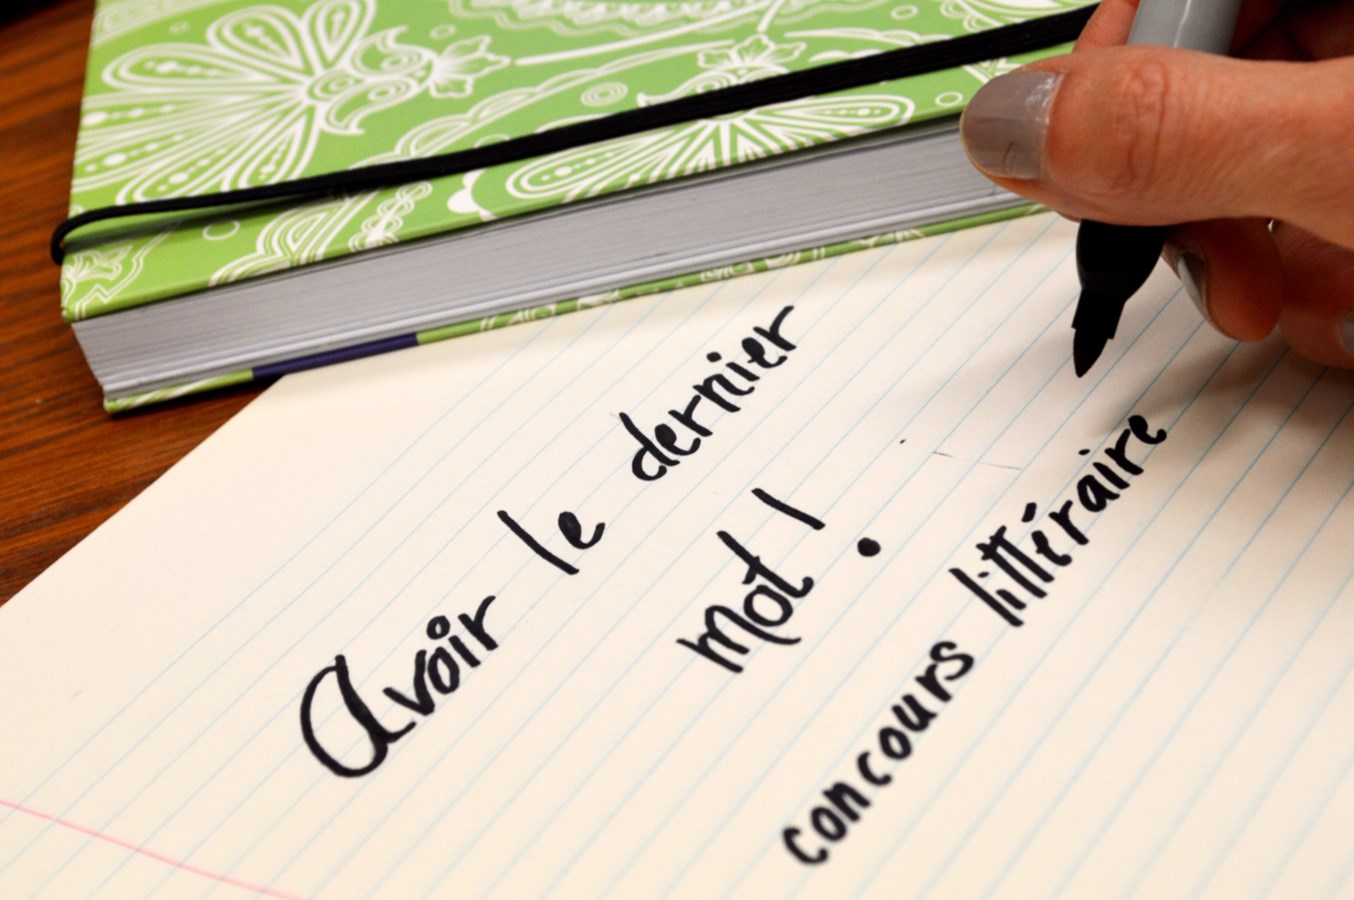 Avoir le dernier
mot !
concours littéraire